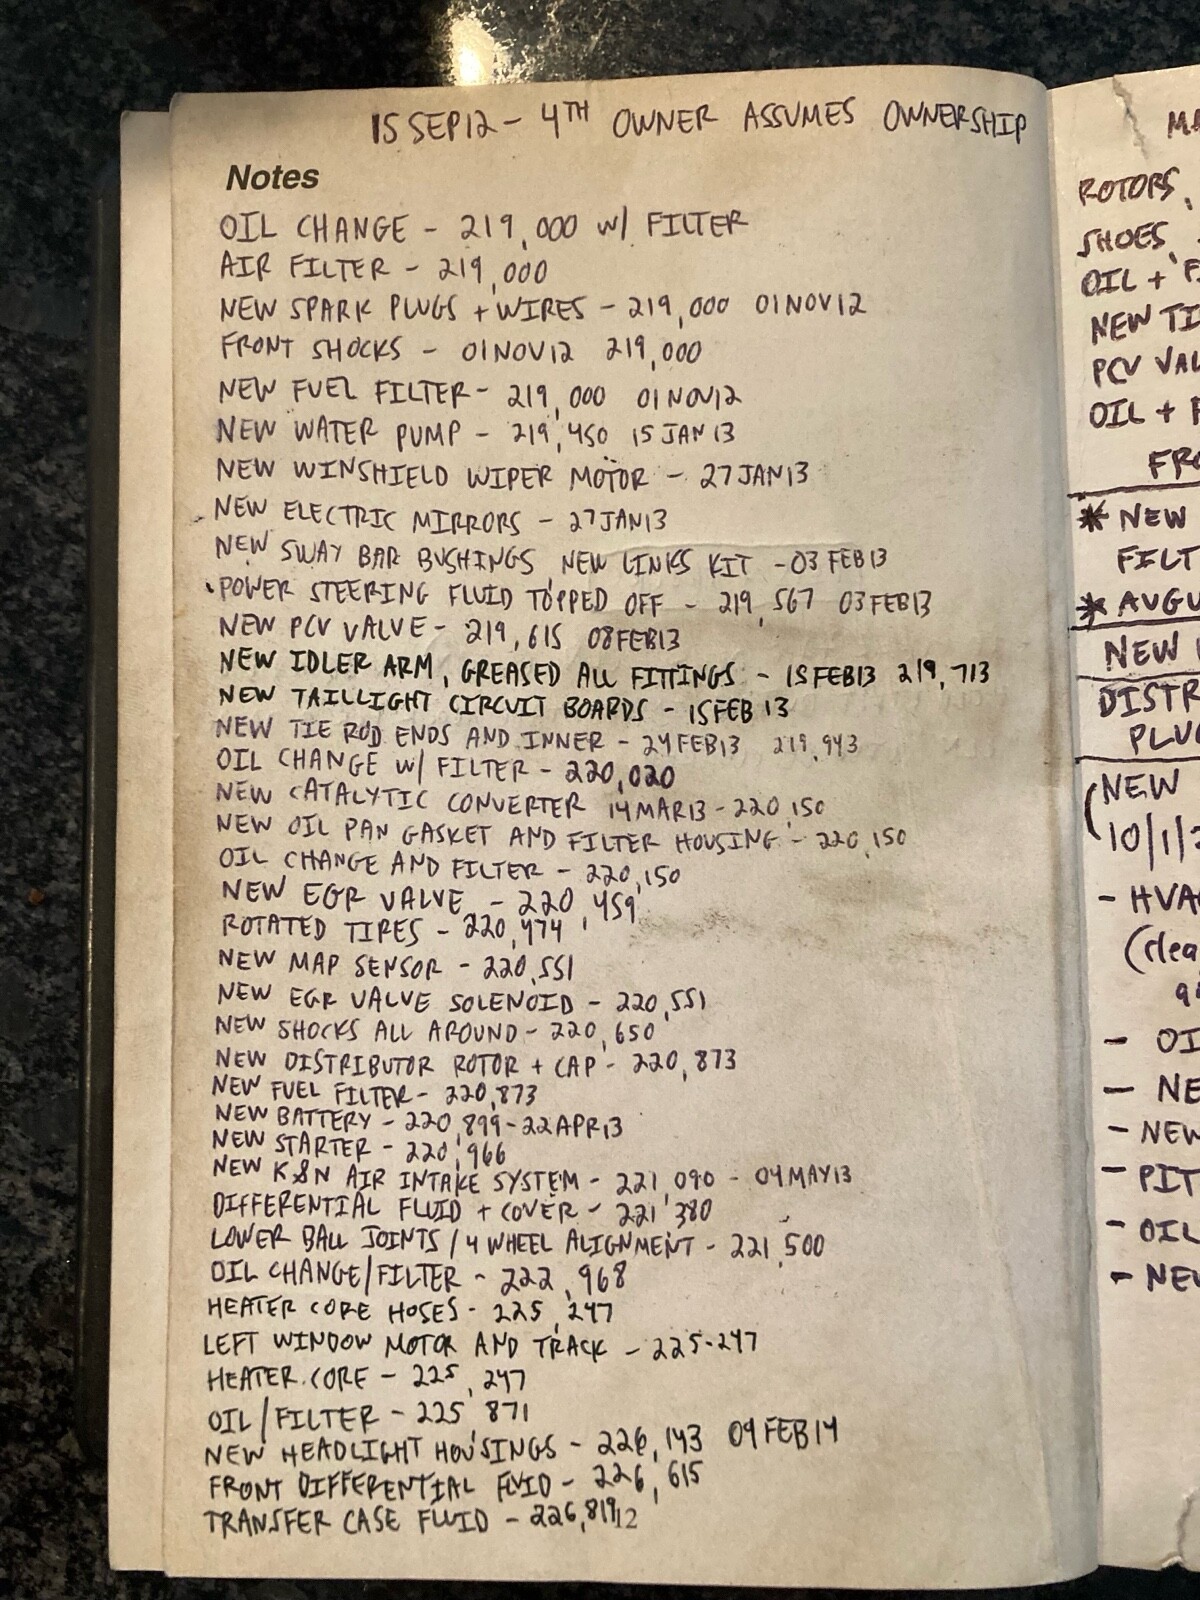 15 SEP12 - 4TH OWNER ASSUMES OWNERSHIP
Notes
OIL CHANGE - 219,000 W/ FILTER
AIR FILTER - 219,000
NEW SPARK PLUGS + WIRES - 219,000 01NOV12
FRONT SHOCKS - 01NOV12 219,000
NEW FUEL FILTER - 219,000 01NOV12
NEW WATER PUMP - 219,450 15JAN13
NEW WINSHIELD WIPER MOTOR - 27JAN13
NEW ELECTRIC MIRRORS - 27JAN13
NEW SWAY BAR BUSHINGS NEW LINKS KIT - 03FEB13
POWER STEERING FLUID TOPPED OFF - 219,567 03FEB13
NEW PCV VALVE - 219,615 08FEB13
NEW IDLER ARM, GREASED ALL FITTINGS - 15FEB13 219,713
NEW TAILLIGHT CIRCUIT BOARDS - 15FEB13
NEW TIE ROD ENDS AND INNER - 24FEB13 219,943
OIL CHANGE W/ FILTER - 220,020
NEW CATALYTIC CONVERTER 14MAR13 - 220,150
NEW OIL PAN GASKET AND FILTER HOUSING - 220,150
OIL CHANGE AND FILTER - 220,150
NEW EGR VALVE - 220,459
ROTATED TIRES - 220,474
NEW MAP SENSOR - 220,551
NEW EGR VALVE SOLENOID - 220,551
NEW SHOCKS ALL AROUND - 220,650
NEW DISTRIBUTOR ROTOR + CAP - 220,873
NEW FUEL FILTER - 220,873
NEW BATTERY - 220,899 - 22APR13
NEW STARTER - 220,966
NEW K&N AIR INTAKE SYSTEM - 221,090 - 04MAY13
DIFFERENTIAL FLUID + COVER - 221,380
LOWER BALL JOINTS / 4 WHEEL ALIGNMENT - 221,500
OIL CHANGE/FILTER - 222,968
HEATER CORE HOSES - 225,247
LEFT WINDOW MOTOR AND TRACK - 225-247
HEATER CORE - 225,247
OIL/FILTER - 225,871
NEW HEADLIGHT HOUSINGS - 226,143 09FEB14
FRONT DIFFERENTIAL FLUID - 226,615
TRANSFER CASE FLUID - 226,819
12
ROTORS,
SHOES
OIL +
NEW
PCV
OIL +
* NEW
* 
NEW
(NEW
10/1/
-
- OIL
-
- NEW
-
- OIL
- NEW